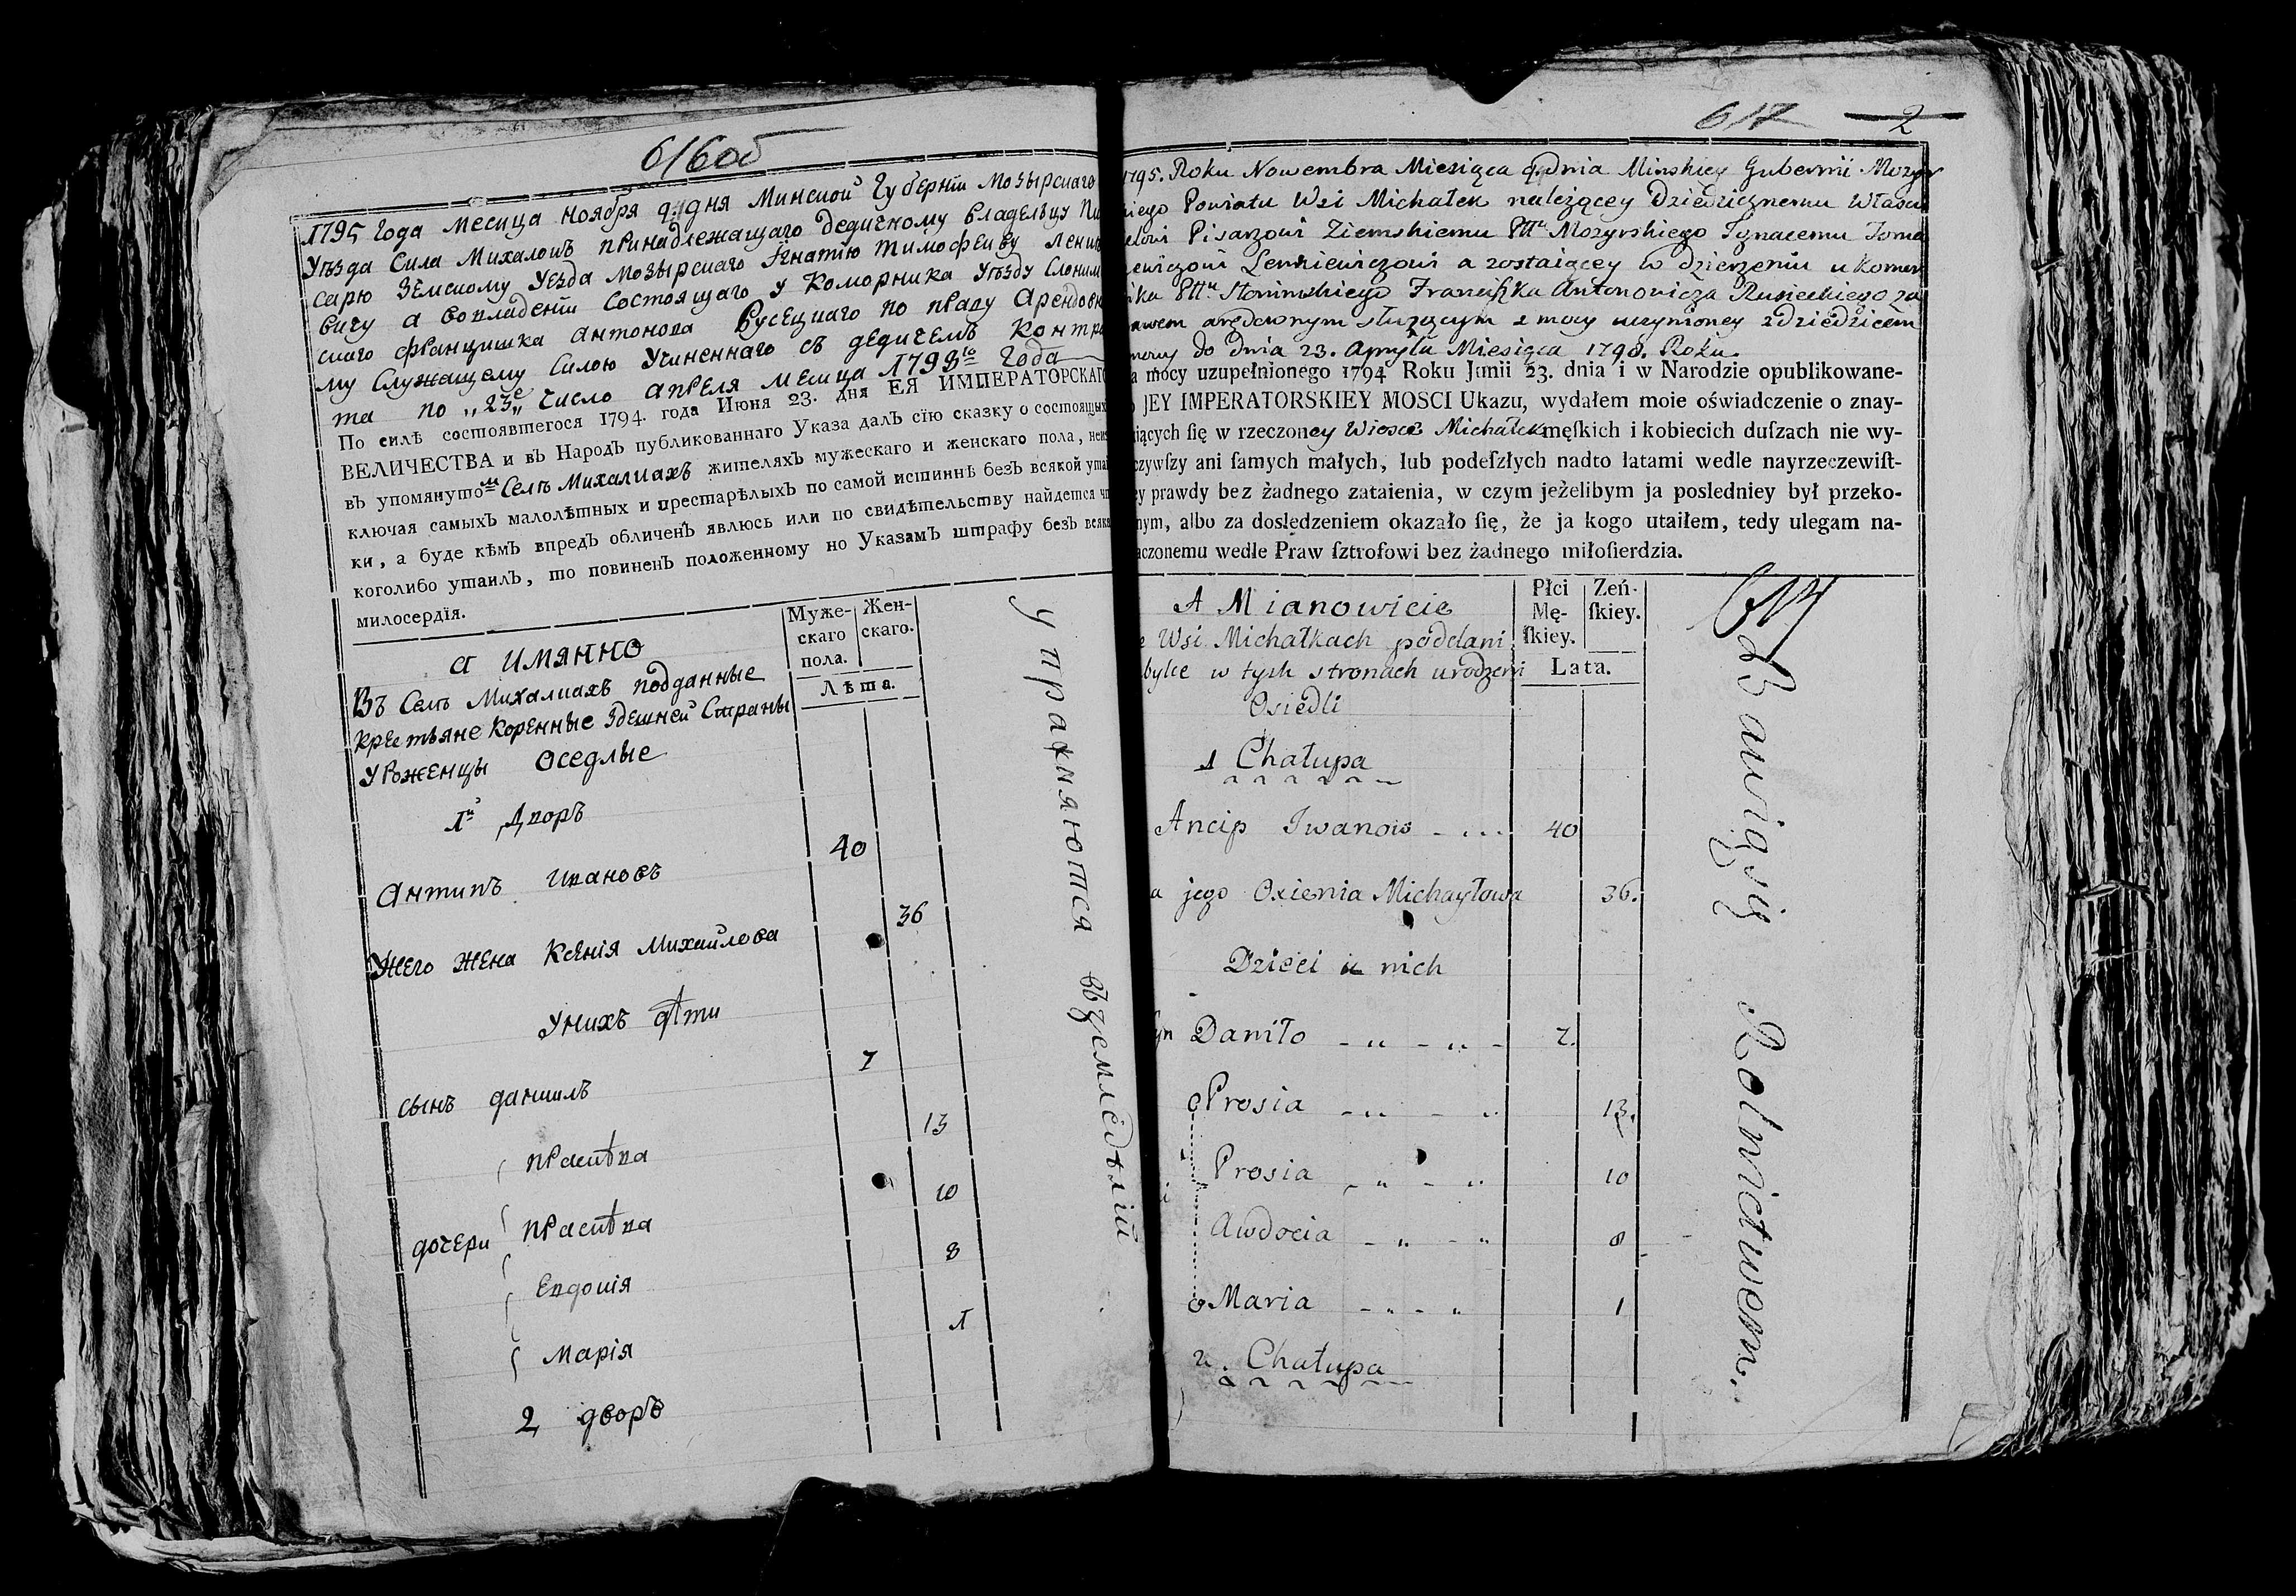 616об
1795 Года месица ноября 9. дня Минской Губернїи Мозырскаго
Уѣзда Села Михалокъ принадлежащаго дедичному владельцу Пи
сарю Земскому Уезда Мозырскаго Игнатїю Тимофееву Ленке
вичу а во владенїи состоящаго у Коморника Уѣзду Слоним
скаго Францишка Антонова Русецкаго по праву Арендовно
му служащему силою учиненнаго съ дедичемъ Контра
та по „23е„ число апреля месица 1798го Года
По силѣ состоявшегося 1794. года Июня 23. дня ЕЯ ИМПЕРАТОРСКАГО
ВЕЛИЧЕСТВА и въ Народъ публикованнаго Указа далъ сїю сказку о состоящихъ
въ упомянутомъ Селѣ Михалкахъ жителяхъ мужескаго и женскаго пола, неис
ключая самыхъ малолѣтныхъ и престарѣлыхъ по самой истиннѣ безъ всякой утай
ки, а буде кѣмъ впредь обличенъ явлюсь или по свидѣтельству найдется что
коголибо утаилъ, то повиненъ положенному по Указамъ штрафу безъ всяка
милосердїя.
а имянно
Муже-
скаго
пола.
Жен-
скаго.
Лѣта.
Въ Селѣ Михалкахъ подданные
крестьяне коренные здешней Страны
уроженцы оседлые
1й Дворъ
Антипъ Ивановъ 40
Ужего жена Ксенія Михайлова 36
Унихъ дѣти
сынъ даниилъ 7
Прасковя 13
дочери Прасковя 10
Евдокія 8
Марія 1
2 дворъ
упражняются въ земледѣлїи
617 2
1795. Roku Nowembra Miesiąca 9. dnia Minskiey Gubernii Mozyr
skiego Powiatu Wsi Michałek należącey Dziedzicznemu Własci
cielowi Pisarzowi Ziemskiemu Pttu Mozyrskiego Ignacemu Toma
szewiczowi Lenkiewiczowi a zostaiącey w dzierżeniu u Komor
nika Pttu Słonimskiego Franciszka Antonowicza Rusieckiego za
prawem arędownym służącym z mocy uczynioney z dziedzicem
do dnia 23. Apryla Miesiąca 1798. Roku.
a mocy uzupełnionego 1794 Roku Junii 23. dnia i w Narodzie opublikowane-
o JEY IMPERATORSKIEY MOSCI Ukazu, wydałem moie oświadczenie o znay-
uiących ſię w rzeczoney Wiosce Michałek męſkich i kobiecich duſzach nie wy-
czywſzy ani ſamych małych, lub podeſzłych nadto latami wedle nayrzeczewiſt-
ey prawdy bez żadnego zataienia, w czym jeżelibym ja posledniey był przeko-
nym, albo za dosledzeniem okazało ſię, że ja kogo utaiłem, tedy ulegam na-
aczonemu wedle Praw ſztrofowi bez żadnego miłoſierdzia.
A Mianowicie
Płci
Mę-
ſkiey.
Zeń-
ſkiey.
Lata.
e Wsi Michałkach poddani
bylce w tych stronach urodzeni
Osiedli
1 Chałupa
Ancip Iwanow 40
a jego Oxienia Michayłowa 36.
Dzieci u nich
yn Daniło 7.
Prosia 13.
Prosia 10
Awdocia 8
Maria 1
2. Chałupa
Bawią się Rolnictwem.